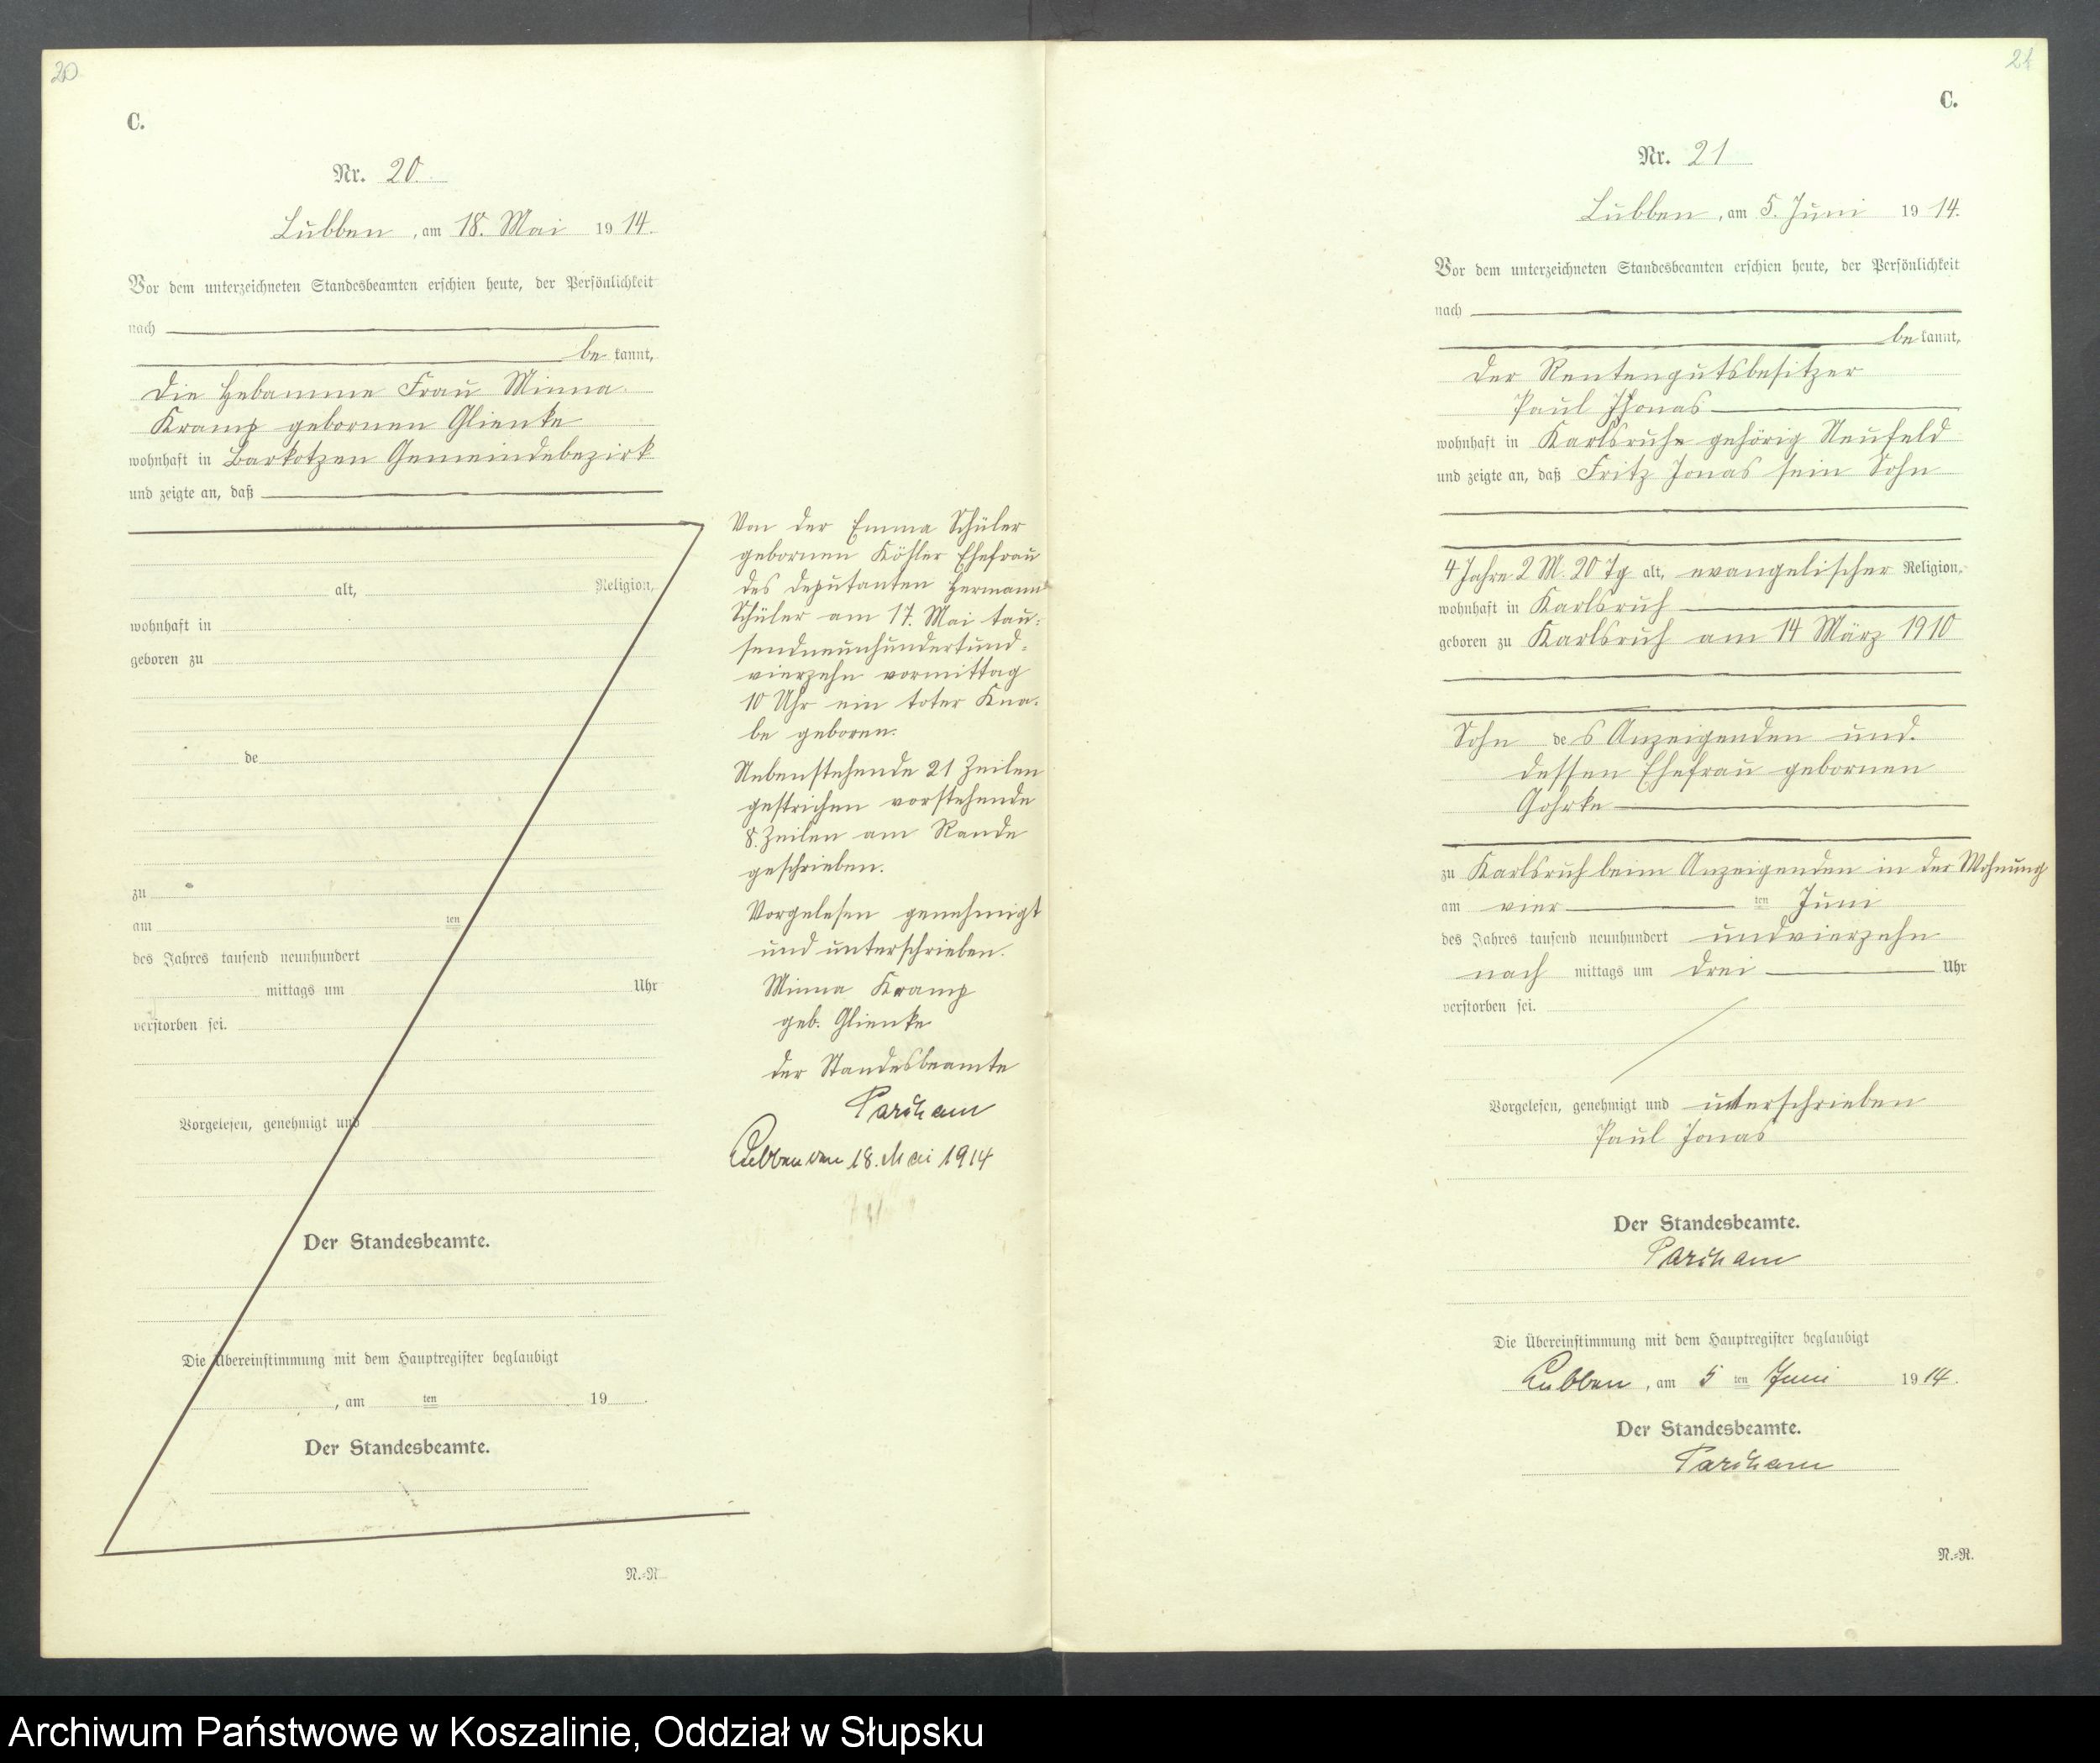 20
C.
Nr. 20.
Lubben, am 18. Mai 1914.
Vor dem unterzeichneten Standesbeamten erschien heute, der Persönlichkeit
nach
be kannt,
die Hebamme Frau Minna
Kramp gebornen Glienke
wohnhaft in Barkotzen Gemeindebezirk
und zeigte an, daß
alt, Religion,
wohnhaft in
geboren zu
de
zu
am ten
des Jahres tausend neunhundert
mittags um Uhr
verstorben sei.
Vorgelesen, genehmigt und
Der Standesbeamte.
Die Übereinstimmung mit dem Hauptregister beglaubigt
, am ten 19
Der Standesbeamte.
N.=R.
Von der Emma Schüler
gebornen Köhler Ehefrau
des deputanten Hermann
Schüler am 17. Mai tau-
sendneunhundertund-
vierzehn vormittag
10 Uhr ein toter Kna-
be geboren.
Nebenstehende 21 Zeilen
gestrichen vorstehende
8. Zeilen am Rande
geschrieben.
Vorgelesen genehmigt
und unterschrieben.
Minna Kramp
geb. Glienke
der Standesbeamte
Lubben den 18. Mai 1914
21
C.
Nr. 21
Lubben, am 5. Juni 1914.
Vor dem unterzeichneten Standesbeamten erschien heute, der Persönlichkeit
nach
be kannt,
der Rentengutsbesitzer
Paul Jonas
wohnhaft in Karlsruhe gehörig Neufeld
und zeigte an, daß Fritz Jonas sein Sohn
4 Jahre 2 M. 20 Tg alt, evangelischer Religion,
wohnhaft in Karlsruh
geboren zu Karlsruh am 14 März 1910
Sohn des Anzeigenden und
dessen Ehefrau gebornen
Gohrke
zu Karlsruh beim Anzeigenden in der Wohnung
am vier ten Juni
des Jahres tausend neunhundert undvierzehn
nach mittags um drei Uhr
verstorben sei.
Vorgelesen, genehmigt und unterschrieben
Paul Jonas
Der Standesbeamte.
Die Übereinstimmung mit dem Hauptregister beglaubigt
Lubben, am 5 ten Juni 1914.
Der Standesbeamte.
N.=R.
Archiwum Państwowe w Koszalinie, Oddział w Słupsku